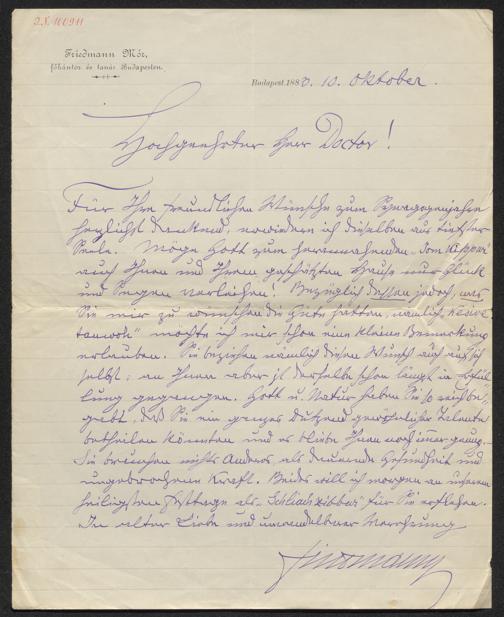 Friedmann Mór,
főkántor és tanár Budapesten.
Budapest, 188 10. Oktober.
Hochgeehrter Herr Doctor!
Für Ihre freundlichen Wünsche zum Synagogenjahre
herzlichst dankend, erwiedere ich dieselben aus tiefster
Seele. Möge Gott zum herannahenden "Jom Kippur"
auch Ihnen und Ihrem geschätzten Hause nur Glück
und Segen verleihen! Bezüglich dessen jedoch, was
Sie mir zu wünschen die Güte hatten, nämlich
möchte ich mir schon eine kleine Bemerkung
erlauben. Sie beziehen nämlich diesen Wunsch auch auf sich
selbst; an Ihnen aber ist derselbe schon längst in Erfül-
lung gegangen. Gott u. Natur haben Sie so reich be-
gabt, daß Sie ein ganzes Dutzend gewöhnlicher Talente
betheilen könnten und es bliebe Ihnen noch immer genug.
Sie brauchen nichts Anderes, als dauernde Gesundheit und
ungebrochene Kraft. Beides will ich morgen an unserem
heiligsten Festtage als für Sie erflehen.
In alter Liebe und unwandelbarer Verehrung
Friedmann